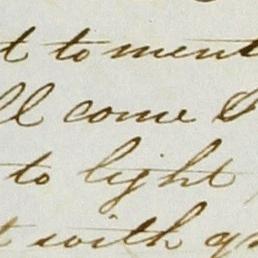 t to ment
ll come I
to light
t with gr